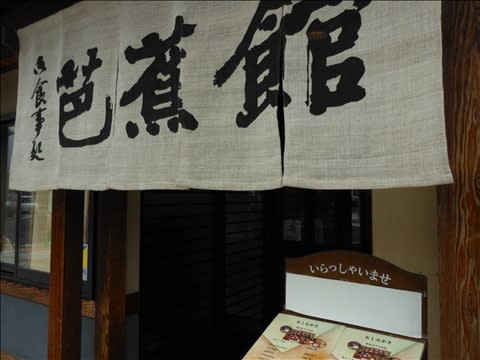 芭蕉館
お食事処
いらっしゃいませ
おしながき
おしながき